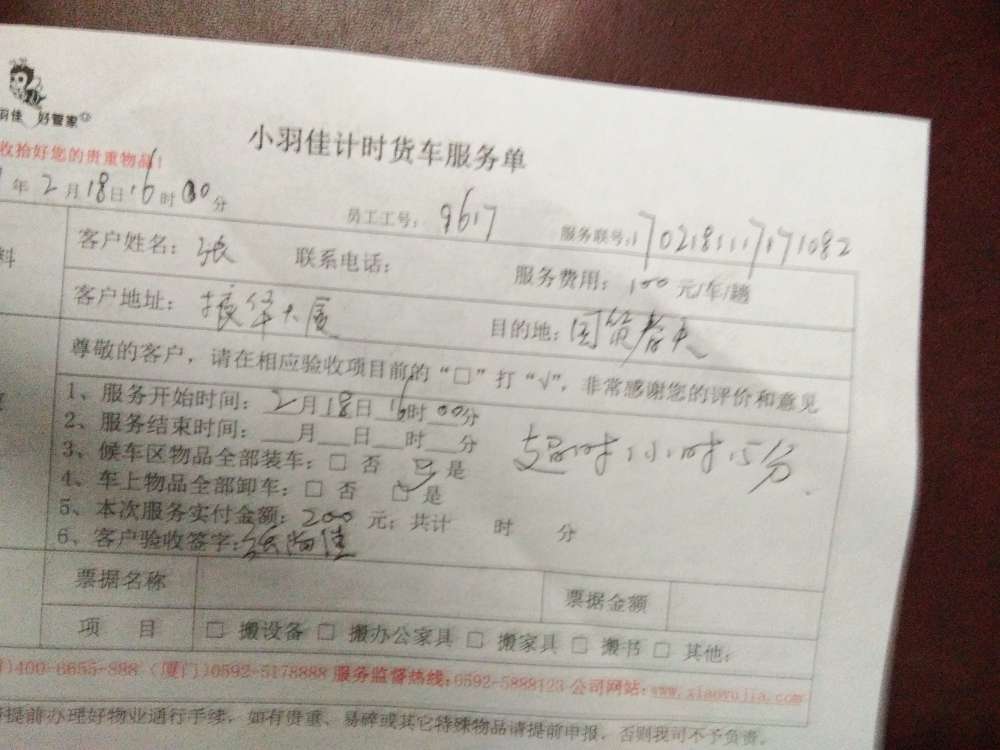 羽佳 好管家
小羽佳计时货车服务单
收拾好您的贵重物品！
年2月18日16时00分 员工工号：9617 服务联号：170218111717082
料 客户姓名：张 联系电话： 服务费用：100元/车/趟
客户地址：振华大厦 目的地：国贸春天
尊敬的客户，请在相应验收项目前的“□”打“√”，非常感谢您的评价和意见
1、服务开始时间：2月18日16时00分
2、服务结束时间：__月__日__时__分 超时1小时15分
3、候车区物品全部装车：□ 否 □ 是
4、车上物品全部卸车：□ 否 □ 是
5、本次服务实付金额：200元；共计 时 分
6、客户验收签字：
票据名称 票据金额
项 目 □ 搬设备 □ 搬办公家具 □ 搬家具 □ 搬书 □ 其他：
)400-6655-888 (厦门)0592-5178888 服务监督热线：0592-5888123 公司网站：www.xiaoyujia.com
提前办理好物业通行手续，如有贵重、易碎或其它特殊物品请提前申报，否则我司不予负责。